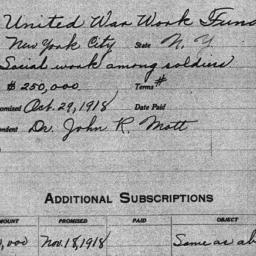 United War Work Fund
New York City State N. Y
Social work among soldiers
$ 250,000 Terms #
Oct. 29, 1918 Date Paid
Dr. John R. Mott
ADDITIONAL SUBSCRIPTIONS
PROMISED PAID OBJECT
Nov. 18, 1918 Same as